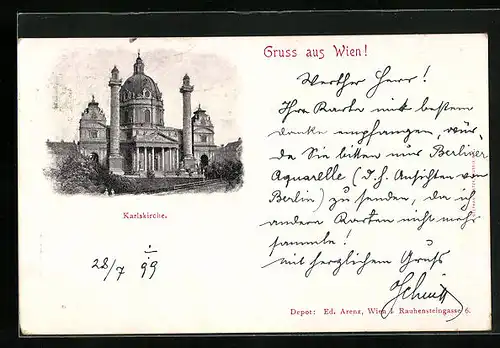 Gruss aus Wien!
Werther Herr!
Ihre Karte mit bestem
danke empfangen, wür-
de Sie bitten nur Berliner
Aquarelle (d. h. Ansichten von
Berlin) zu senden, da ich
andere Karten nicht mehr
sammle!
mit herzlichem Gruß
Karlskirche.
28/7 99
Depot: Ed. Arenz, Wien I. Rauhensteingasse 6.